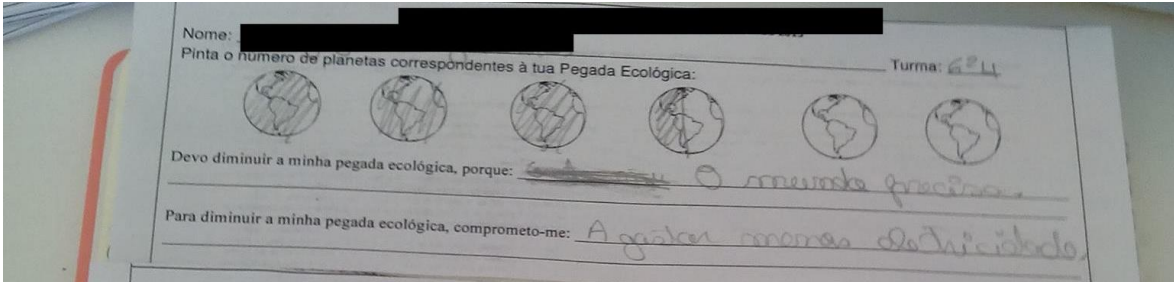 Nome:
Pinta o número de planetas correspondentes à tua Pegada Ecológica:
Turma: 6º H
Devo diminuir a minha pegada ecológica, porque: O mundo precisa.
Para diminuir a minha pegada ecológica, comprometo-me: A gastar menos eletricidade.